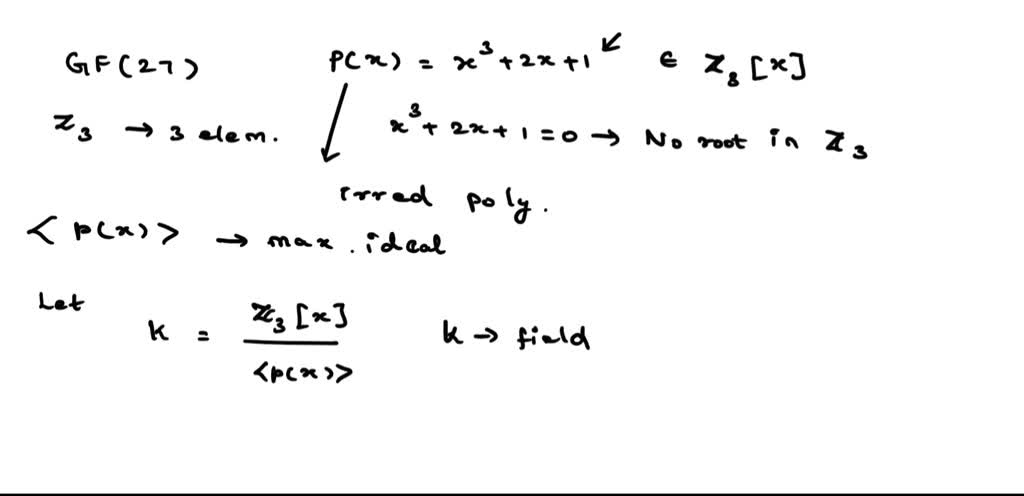 GF(27) P(x) = x³ + 2x + 1 ∈ ℤ₈[x]
ℤ₃ → 3 elem. x³ + 2x + 1 = 0 → No root in ℤ₃
irred poly.
< p(x) > → max. ideal
Let
k = ℤ₃[x] / <p(x)> k → field